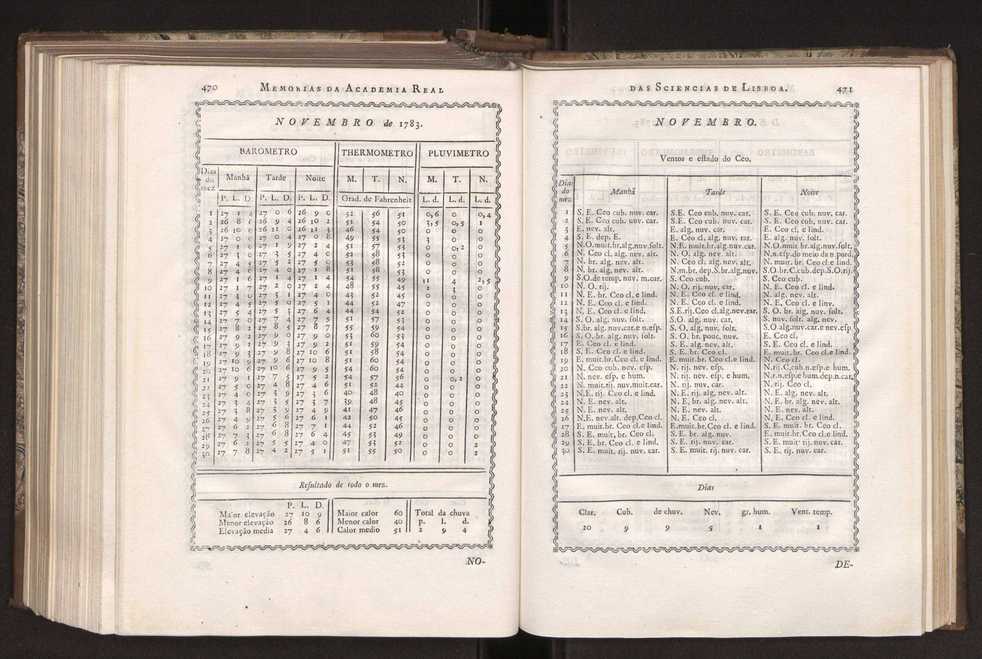 470 MEMORIAS DA ACADEMIA REAL
NOVEMBRO de 1783.
BAROMETRO THERMOMETRO PLUVIMETRO
Dias do mez Manhã Tarde Noite M. T. N. M. T. N.
P. L. D. P. L. D. P. L. D. Grad. de Fahrenheit L. d. L. d. L. d.
1 27 1 27 0 6 26 9 0 52 56 51 0,6 0 0,4
2 26 8 26 9 4 26 10 2 51 54 50 3,5 0,5 1
3 26 10 26 11 0 26 11 46 54 50 0 0 0
4 27 0 27 0 4 27 0 8 49 55 53 3 0 0
5 27 1 27 1 9 27 2 4 51 57 53 0 0,2 0
6 27 3 27 3 5 27 4 0 52 58 53 0 0 0
7 27 4 27 5 2 27 5 0 53 58 52 0 0 0
8 27 4 27 4 0 27 1 8 51 58 53 0 0 0
9 27 1 27 1 4 27 1 4 54 55 49 11 4 2,5
10 27 1 7 27 2 0 27 2 4 48 55 45 2 3 0
11 27 3 0 27 3 27 4 0 43 52 45 0 0 0
12 27 4 5 27 5 0 27 5 1 44 52 47 0 0 0
13 27 5 4 27 5 27 6 4 44 54 52 0 0 0
14 27 7 0 27 7 4 27 7 5 51 57 53 0 0 0
15 27 8 2 27 8 5 27 8 7 55 59 54 0 0 0
16 27 9 27 9 0 27 9 53 60 53 0 0 0
17 27 9 1 27 9 27 9 2 51 59 54 0 0 0
18 27 9 27 9 8 27 10 6 51 58 54 0 0 0
19 27 10 9 27 9 6 27 10 8 51 60 54 0 0 0
20 27 10 6 27 10 6 27 9 5 54 60 54 0 0 0
21 27 9 1 27 7 5 27 5 2 54 57 56 0 0,2 0
22 27 5 0 27 4 8 27 4 6 51 52 44 0 0 0
23 27 4 0 27 3 9 27 3 6 40 48 40 0 0 0
24 27 3 4 27 3 5 27 3 7 39 48 45 0 0 0
25 27 3 8 27 3 9 27 4 9 41 47 46 0 0 0
26 27 4 9 27 5 27 6 1 42 50 45 0 0 0
27 27 6 2 27 6 8 27 7 44 52 46 0 0 0
28 27 7 27 6 8 27 6 4 45 53 49 0 0 0
29 27 6 2 27 5 5 27 4 0 47 53 52 0 0 2
30 27 7 8 27 4 2 27 5 1 51 55 50 0 0 2
Resultado de todo o mez.
P. L. D.
Maior elevação 27 10 9 Maior calor 60 Total da chuva
Menor elevação 26 8 6 Menor calor 40 p. l. d.
Elevação media 27 4 6 Calor medio 51 2 9 4
NO-
DAS SCIENCIAS DE LISBOA. 471
NOVEMBRO.
Ventos e estado do Ceo.
Dias do mez Manhã Tarde Noite
1 S. E. Ceo cub. nuv. car. S.E. Ceo cub. nuv. car. S. E. Ceo cub. nuv. car.
2 S. E. Ceo cub. nuv. car. S.E. Ceo cub. nuv. car. S. E. Ceo cub. nuv. car.
3 E. nev. alt. E. alg. nuv. car. E. Ceo cl. e lind.
4 S. E. dep. E. E. Ceo cl. alg. nuv. rar. E. alg. nuv. solt.
5 N.O.muit.br.alg.nuv.solt. N.E. muit.br.alg.nuv.car. N.O.muit.br.alg.nuv.solt.
6 N. Ceo cl. alg. nev. alt. N. O. alg. nev. alt. N.n.esp.do meio da n.pard.
7 N. br. alg. nev. alt. N. Ceo cl. alg. nev. alt. N. muit. br. Ceo cl. e lind.
8 N. br. alg. nev. alt. N.m.br. dep.S.br.alg.nuv. S.O.br.C.cub.dep.S.O.rij.
9 S.O.de temp. nuv. m.car. S. Ceo cub. N. Ceo cub.
10 N. O. rij. N. O. rij. nuv. car. N. E. Ceo cl. e lind.
11 N. E. br. Ceo cl. e lind. N. E. Ceo cl. e lind. N. alg. nev. alt.
12 N. E. Ceo cl. e lind. N. E. Ceo cl. e lind. N. E. Ceo cl. e linv.
13 N. E. Ceo cl. e lind. S.E.rij.Ceo cl.alg.nev.car. S. O. br. alg. nuv. solt.
14 S. O. alg. nuv. solt. S.O. alg. nuv. car. S. nuv. solt. alg. nev.
15 S.br. alg. nuv.car.e n.esp. S. O. alg, nuv. solt. S.O alg.nuv.car.e nev.esp.
16 S. O. br. alg. nuv. solt. S. O. br. pouc. nuv. E. Ceo cl.
17 E. Ceo cl. e lind. S. E. alg. nev. alt. S. E. Ceo cl. e lind.
18 S. E. Ceo cl. e lind. S. E. br. Ceo cl. E. muit. br. Ceo cl.e lind.
19 E. muit.br.Ceo cl.e lind. E. muit.br. Ceo cl.e lind. N. Ceo cl.
20 N. Ceo cub. nev. esp. N. rij. nev. esp. N.rij.C.cub.n.esp.e hum.
21 N. nev. esp. e hum. N. rij. nev. esp. e hum. N.r.n.esp.e hum.dep.n.car.
22 N. muit.rij. nuv.muit.car. N. rij. nuv. car. N. rij. Ceo cl.
23 N.E. rij. Ceo cl. e lind. N. E. rij. alg. nev. alt. N. E. alg. nev. alt.
24 N. E. nev. alt. N. E. br. alg. nev. alt. N. E. br. alg. nev. alt.
25 N. E. nev. alt. N. E. nev. alt. N. E. nev. alt.
26 N.E. nev.alt. dep.Ceo cl. N. E. Ceo cl. N. E. Ceo cl. e lind.
27 E. muit.br. Ceo cl.e lind. E.muit.br. Ceo cl.e lind. S. E. muit. br. Ceo cl.
28 S. E. muit. br. Ceo cl. S. E. br. alg. nuv. E. muit.br.Ceo cl.e lind.
29 S. E. br. Ceo cl. e lind. S. E. rij. nuv. car. S. E. muit. rij. nuv. car.
30 S. E. muit. rij. nuv. car. S. E. muit. rij. nuv. car. S. E. rij. nuv. car.
Dias
Clar. Cub. de chuv. Nev. gr. hum. Vent. temp.
20 9 9 5 1 1
DE-